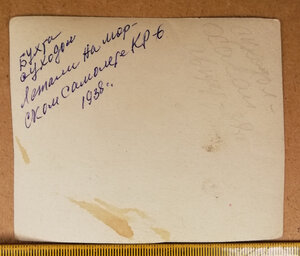 Бухта
Ольходон
Летали на мор-
ском самолете КР-6
1938 г.